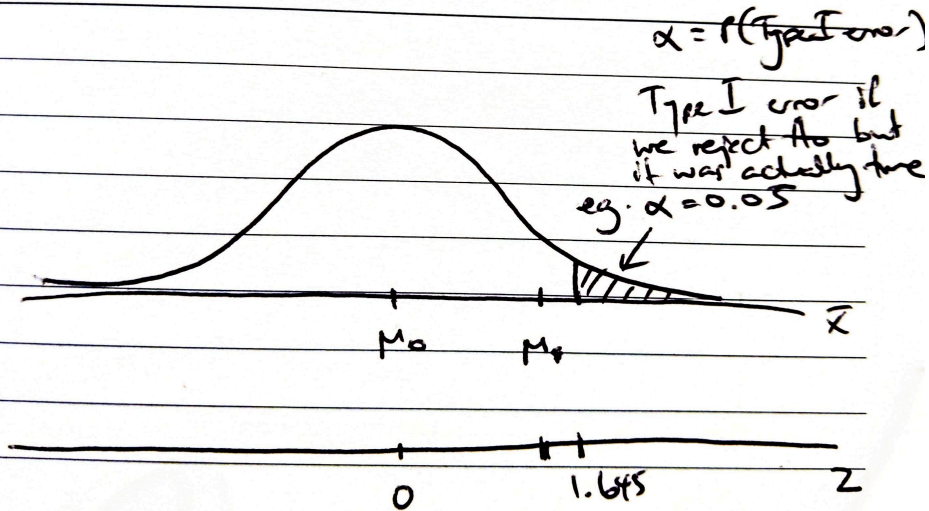 α = P(Type I error)
Type I error if
we reject H₀ but
it was actually true
eg. α = 0.05
x̄
μ₀
0
1.645
Z